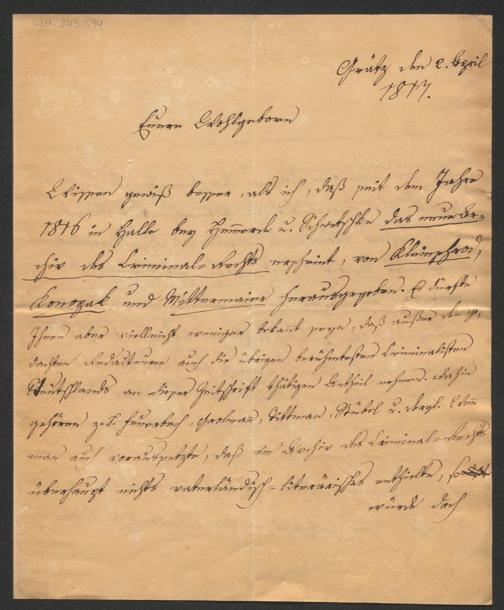 I.N. 243.594
Grätz den 2. April
1817.
Euere Wohlgeborn
Wissen gewiß besser, als ich, daß seit dem Jahre
1816 in Halle bey Hemmerde u. Schwetschke das neue Ar-
chiv des Criminal-Rechts erscheint, von Kleinschrod,
Konopak und Mittermaier herausgegeben. Es dürfte
Ihnen aber vielleicht weniger bekant seyn, daß außer den ge-
dachten Redakteurs auch die übrigen berühmtesten Criminalisten
Deutschlands an dieser Zeitschrift thätigen Antheil nehmen. Dahin
gehören z.B. Feuerbach, Grolman, Tittman, Stübel u. dergl. Wenn
man auch voraussetzte, daß das Archiv des Criminal-Rechts
überhaupt nichts vaterländisch-literärisches enthielte, so
würde doch